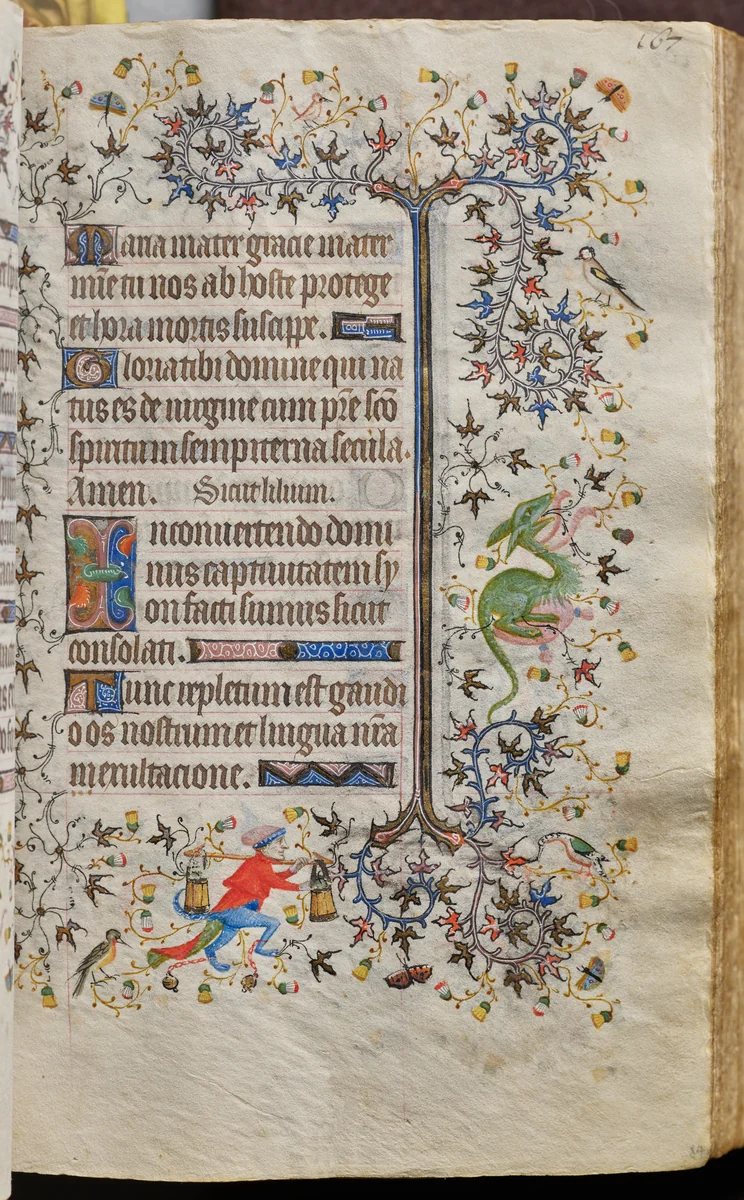 167
Maria mater gracie mater
mie tu nos ab hoste protege
et hora mortis suscipe.
Gloria tibi domine qui na
tus es de virgine cum pre sco
spiritu in sempiterna secula.
Amen. Sicut lilium.
In convertendo domi
nus captivitatem sy
on facti sumus sicut
consolati.
Tunc repletum est gaudi
o os nostrum et lingua nra
in exultacione.